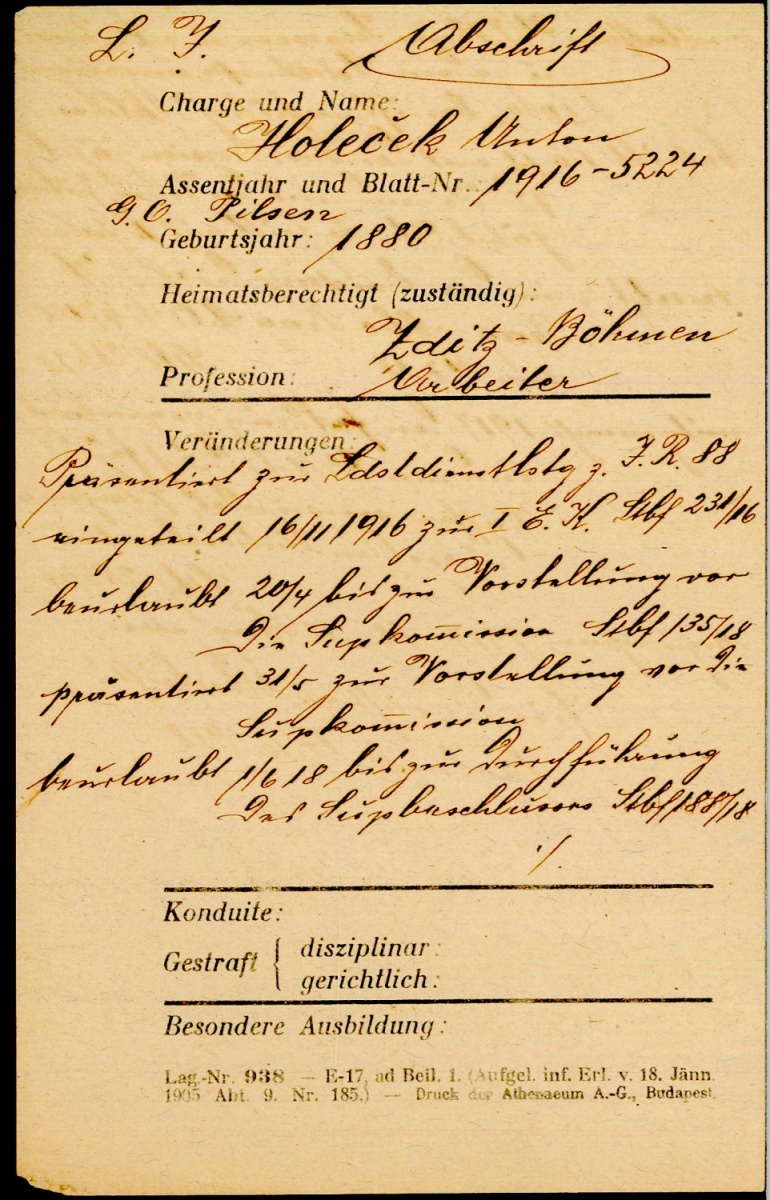 L. I. Abschrift
Charge und Name:
Holeček Anton
Assentjahr und Blatt-Nr. 1916-5224
G. O. Pilsen
Geburtsjahr: 1880
Heimatsberechtigt (zuständig):
Zditz - Böhmen
Profession: Arbeiter
Veränderungen:
Präsentiert zur Ldstdienstlstg z. I. R. 88
eingeteilt 16/11 1916 zur I E. K. Stbf 231/16
beurlaubt 20/4 bis zur Vorstellung vor
die Supkom̅ission Stbf 135/18
präsentiert 31/5 zur Vorstellung vor die
Supkom̅ission
beurlaubt 1/6 18 bis zur Durchführung
des Supbeschlusses Stbf 188/18
·/.
Konduite:
Gestraft { disziplinar:
gerichtlich:
Besondere Ausbildung:
Lag.-Nr. 938 — E-17, ad Beil. 1. (Aufgel. inf. Erl. v. 18. Jänn.
1905 Abt. 9. Nr. 185.) — Druck der Athenaeum A.-G., Budapest.